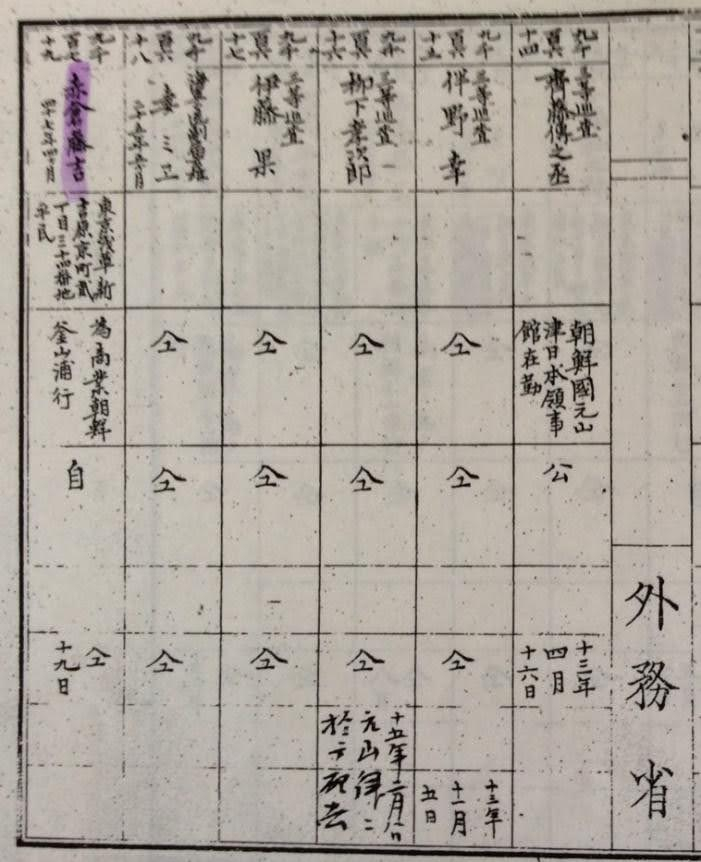 外務省
九千
百六
十四
三等巡査
齊藤傳之丞
朝鮮國元山
津日本領事
館在勤
公
十三年
四月
十六日
九千
百六
十五
三等巡査
伴野幸
仝
仝
仝
十三年
十一月
五日
九千
百六
十六
三等巡査
柳下孝次郎
仝
仝
仝
十五年二月
元山津ニ
於テ死去
九千
百六
十七
三等巡査
伊藤果
仝
仝
仝
九千
百六
十八
仝
仝
仝
九千
百七
十九
赤倉藤吉
四十七年四月
東京浅草新
吉原京町貳
丁目三十四番地
平民
為商業朝鮮
釜山浦行
自
仝
十九日